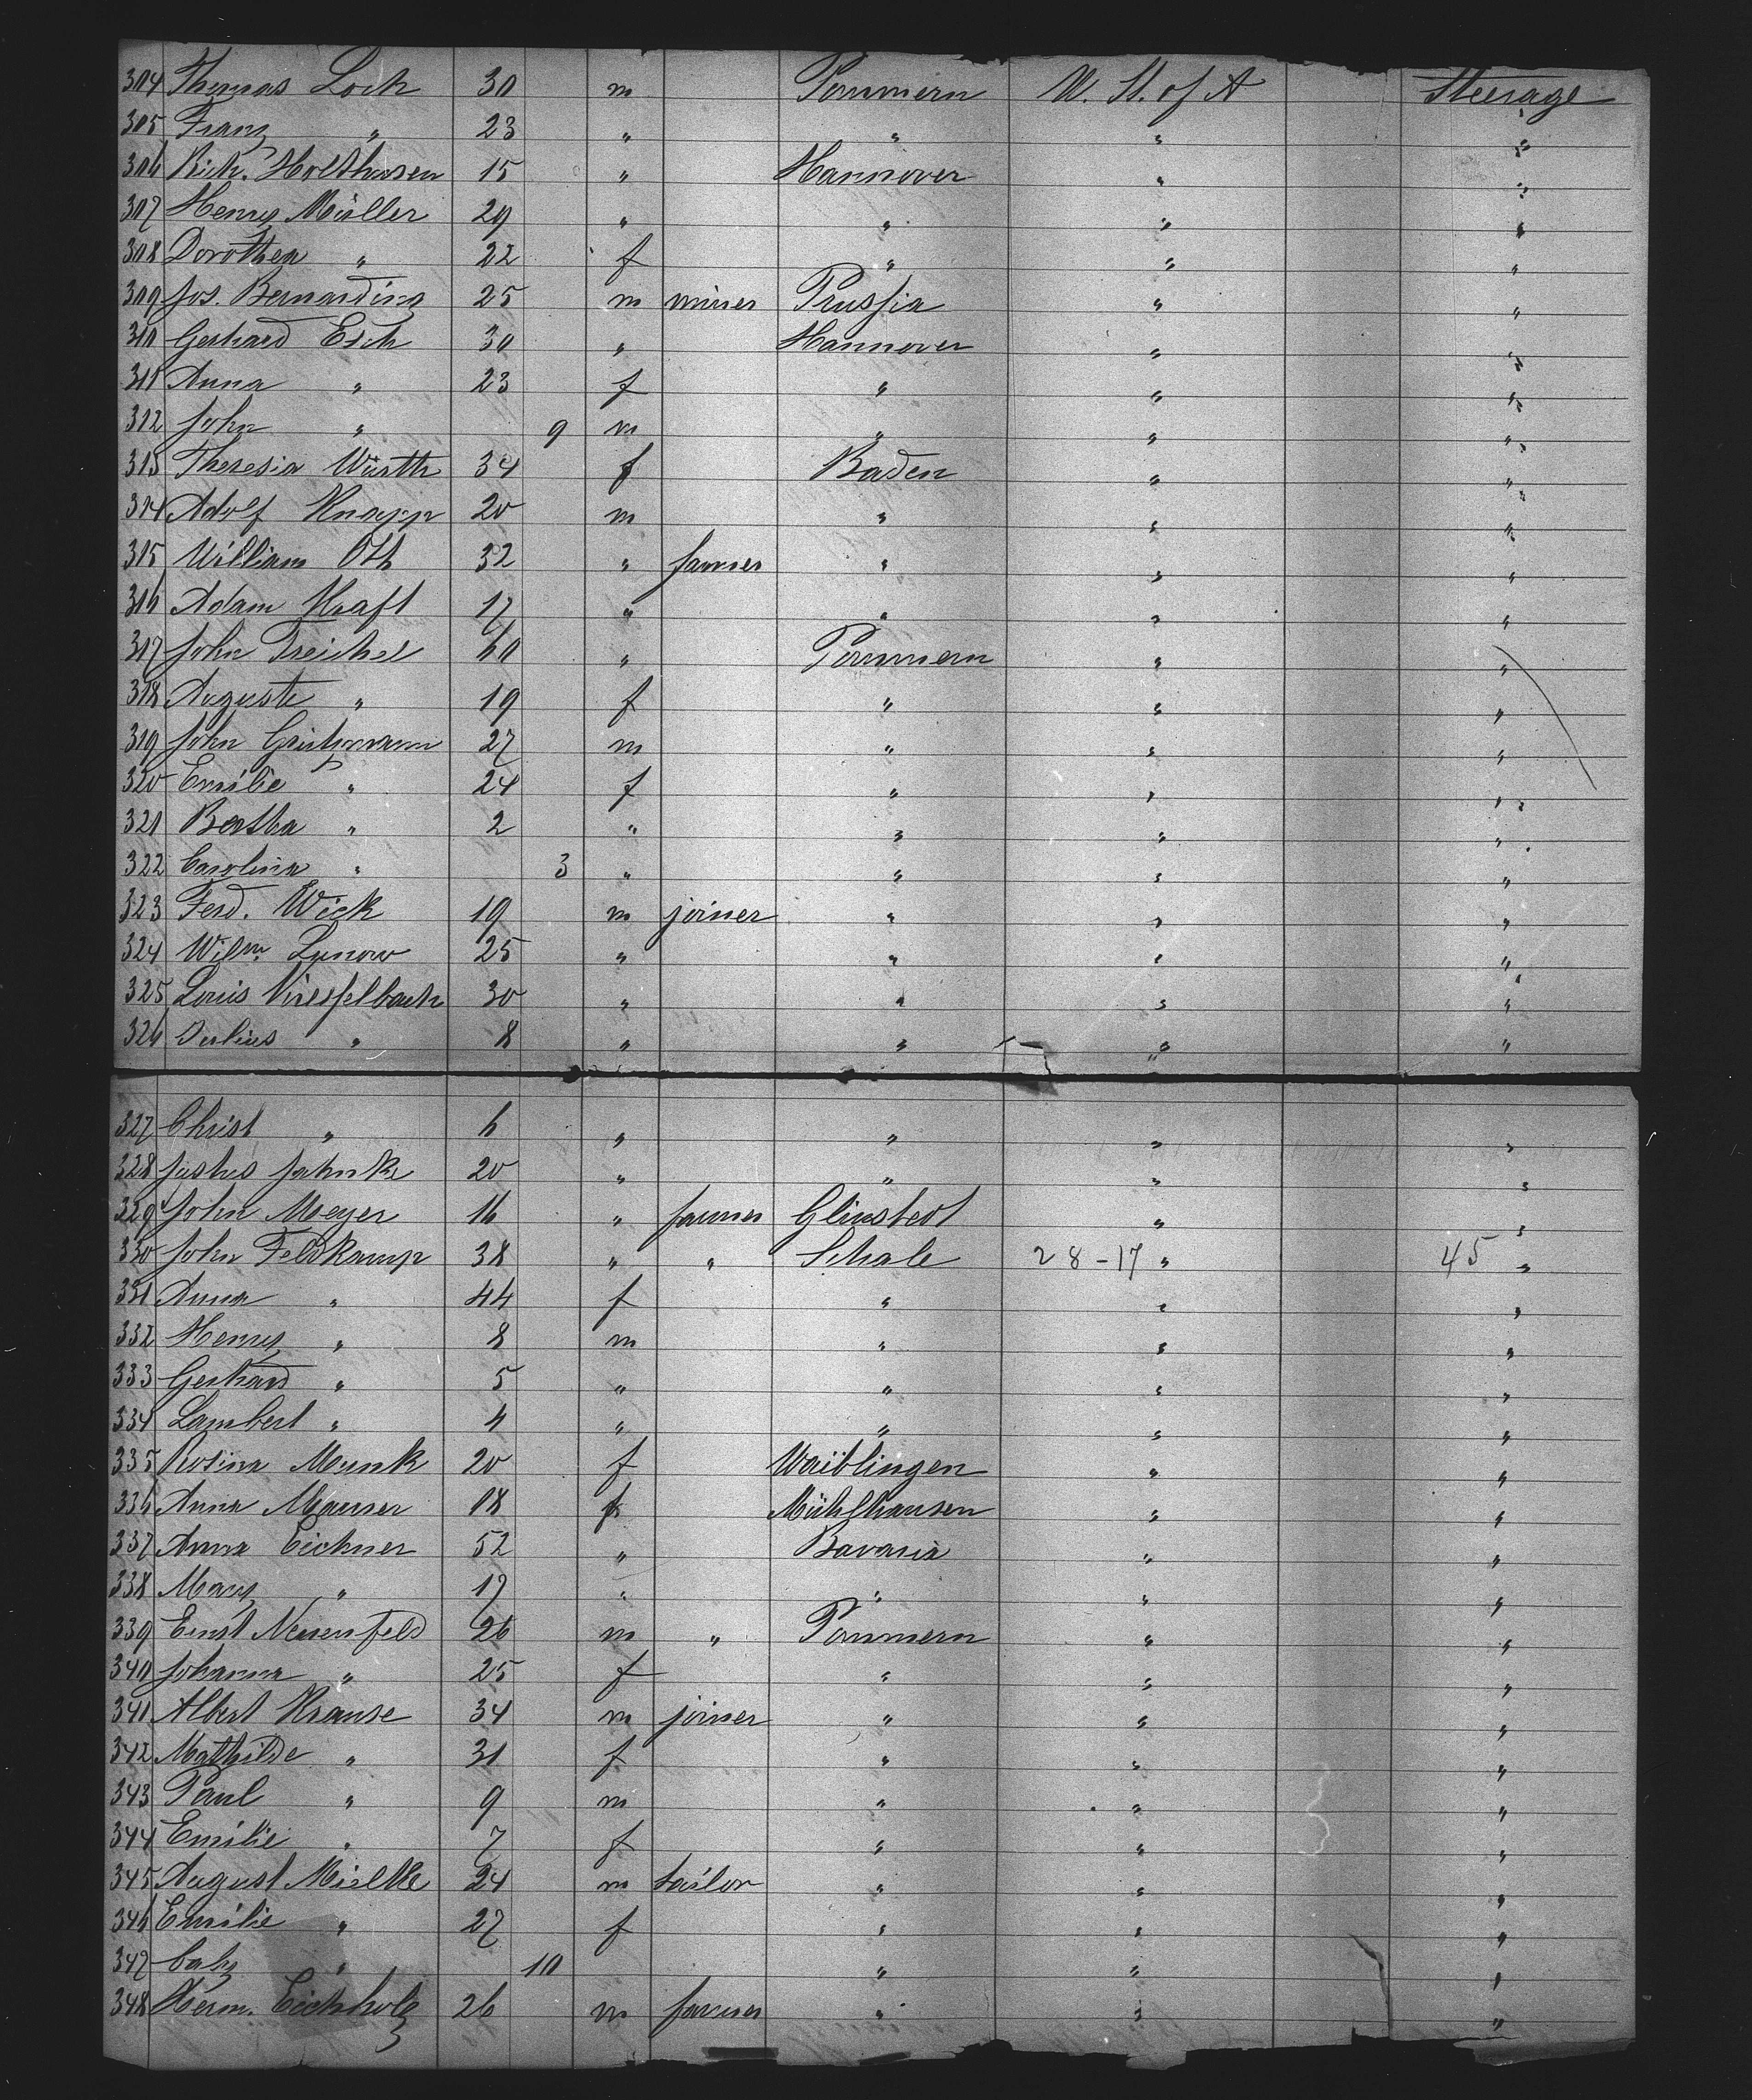 304 Thomas Lock 30 m Pommern U. St. of A Steerage
305 Franz " 23 " " " "
306 Rich. Holthusen 15 " Hannover " "
307 Henry Müller 29 " " " "
308 Dorothea " 22 f " " "
309 Jos. Bernarding 25 m miner Prussia " "
310 Gerhard Esch 30 " Hannover " "
311 Anna " 23 f " " "
312 John " 9 m " " "
313 Theresia Würth 34 f Baden " "
314 Adolf Knapp 20 m " " "
315 William Ott 32 " farmer " " "
316 Adam Kraft 17 " " " "
317 John Treichel 60 " Pommern " "
318 Auguste " 19 f " " "
319 John 27 m " " "
320 Emilie " 24 f " " "
321 Bertha " 2 " " " "
322 Carolina " 3 " " " "
323 Ferd. Wick 19 m joiner " " "
324 Wilm. Lunow 25 " " " "
325 Louis 30 " " " "
326 Julius " 8 " " " "
327 Christ " 6 " " " "
328 Justus Jahnke 20 " " " "
329 John Meyer 16 " farmer Glinstedt " "
330 John Feldkamp 38 " " Schale 28-17 " 45 "
331 Anna " 44 f " " "
332 Henry " 8 m " " "
333 Gerhard " 5 " " " "
334 Lambert " 4 " " " "
335 Rosina Munk 20 f Waiblingen " "
336 Anna Mauser 18 f Mühlhausen " "
337 Anna Eichner 52 " Bavaria " "
338 Mary " 17 " " " "
339 Ernst Neuenfeld 26 m " Pommern " "
340 Johanna " 25 f " " "
341 Albert Krause 34 m joiner " " "
342 Mathilde " 31 f " " "
343 Paul " 9 m " " "
344 Emilie " 7 f " " "
345 August Mielke 24 m tailor " " "
346 Emilie " 27 f " " "
347 baby " 10 " " "
348 Herm. Eichholz 26 m farmer " " "